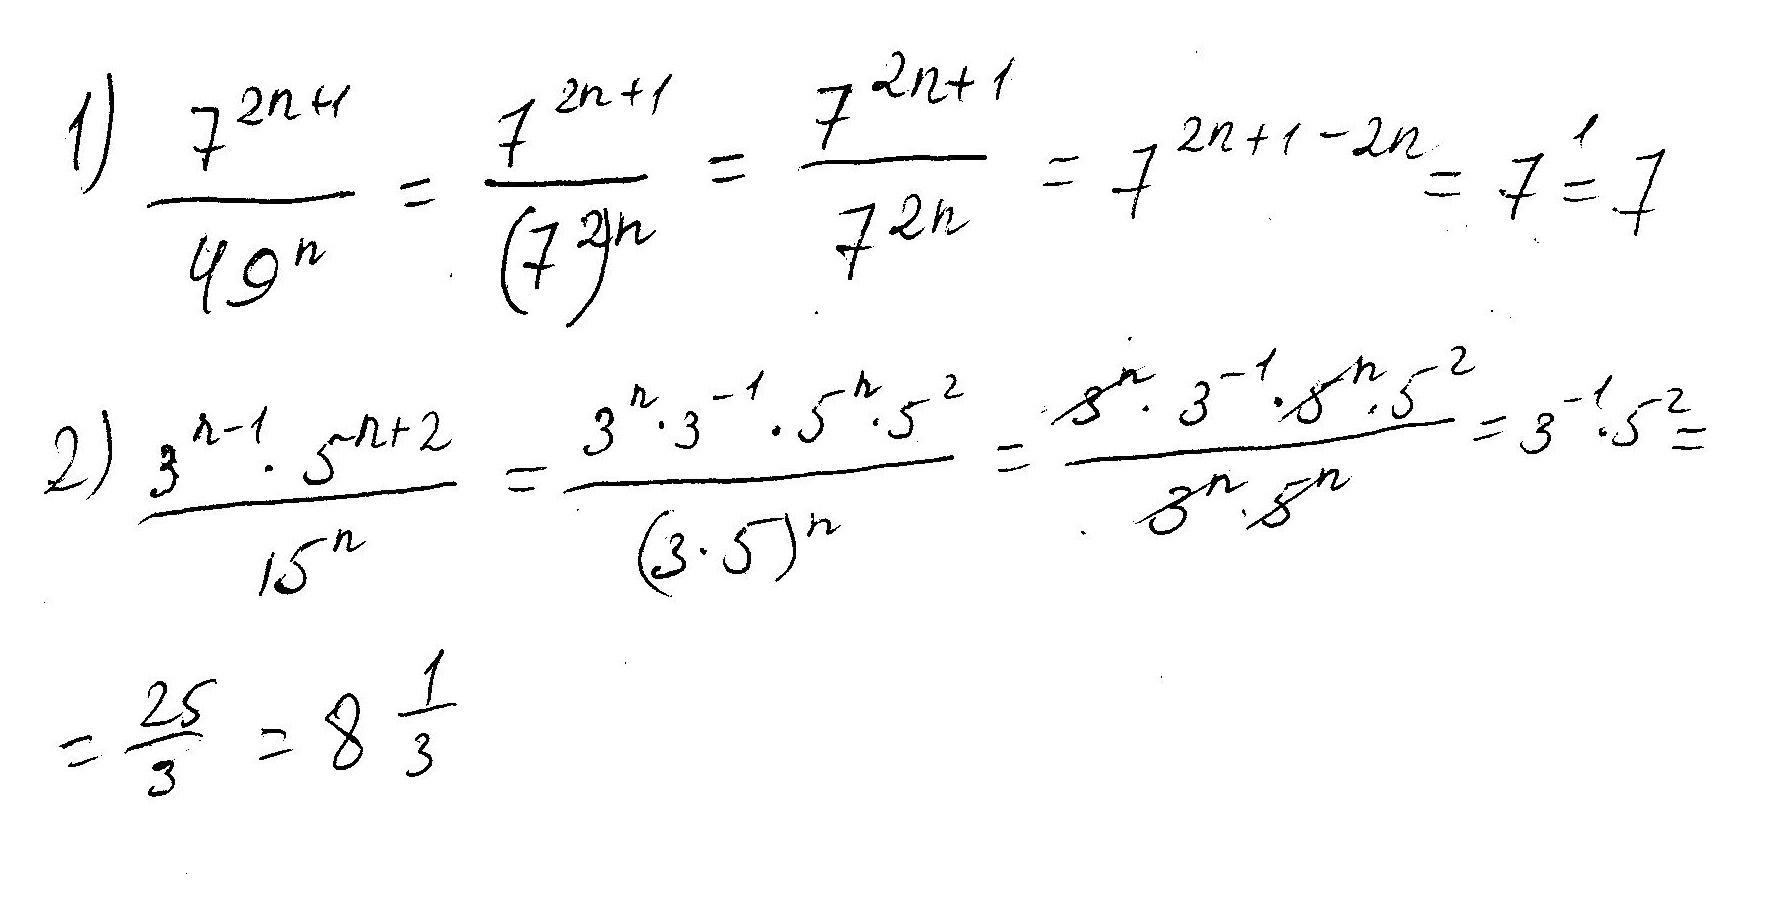 1) \frac{7^{2n+1}}{49^n} = \frac{7^{2n+1}}{(7^2)^n} = \frac{7^{2n+1}}{7^{2n}} = 7^{2n+1-2n} = 7^1 = 7
2) \frac{3^{n-1} \cdot 5^{n+2}}{15^n} = \frac{3^n \cdot 3^{-1} \cdot 5^n \cdot 5^2}{(3 \cdot 5)^n} = \frac{3^n \cdot 3^{-1} \cdot 5^n \cdot 5^2}{3^n \cdot 5^n} = 3^{-1} \cdot 5^2 =
= \frac{25}{3} = 8 \frac{1}{3}